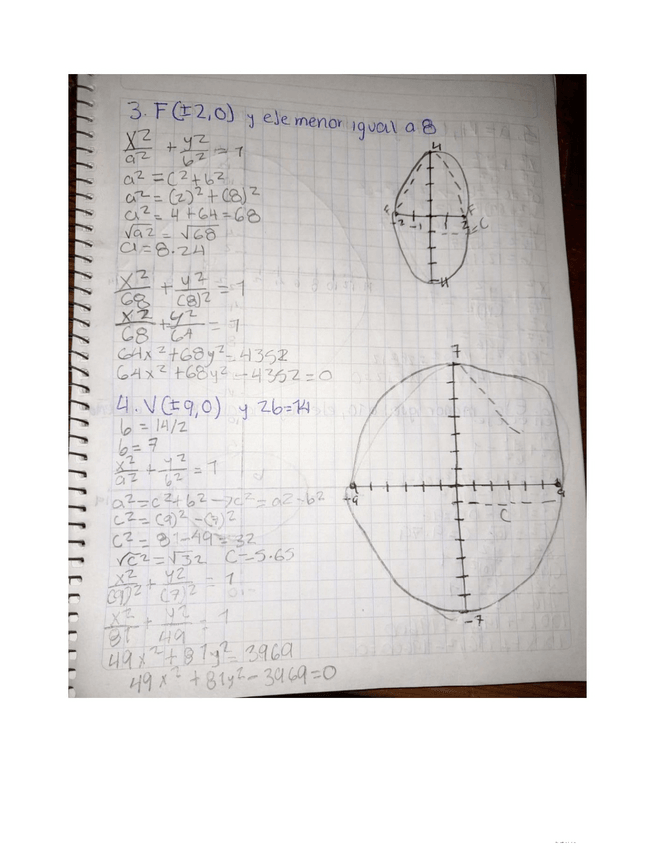 3. F(±2,0) y eje menor igual a 8
x²/a² + y²/b² = 1
a² = c² + b²
a² = (2)² + (8)²
a² = 4 + 64 = 68
√a² = √68
a = 8.24
x²/68 + y²/(8)² = 1
x²/68 + y²/64 = 1
64x² + 68y² = 4352
64x² + 68y² - 4352 = 0
4
-2 -1 1 2
F
=C
-4
4. V(±9,0) y 2b=14
b = 14/2
b = 7
x²/a² + y²/b² = 1
a² = c² + b² → c² = a² - b²
c² = (9)² - (7)²
c² = 81 - 49 = 32
√c² = √32 C = 5.65
x²/(9)² + y²/(7)² = 1
x²/81 + y²/49 = 1
49x² + 81y² = 3969
49x² + 81y² - 3969 = 0
7
9
C
-7